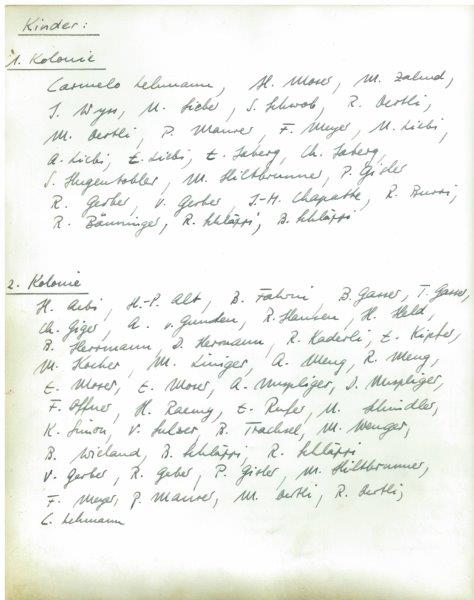 Kinder:
1. Kolonie
Carmelo Lehmann, H. Moser, M. Zahnd,
J. Wyss, M. Sieber, S. Schwob, R. Oertli,
M. Oertli, P. Maurer, F. Meyer, M. Liebi,
A. Liebi, E. Liebi, E. Jaberg, Ch. Jaberg,
S. Hugentobler, M. Hiltbrunner, P. Gisler
R. Gerber, V. Gerber, J.-M. Chapatte, R. Burri,
R. Bänninger, R. Schläppi, B. Schläppi
2. Kolonie
H. Aebi, H.-P. Alt, B. Fahrni B. Gasser, T. Gasser,
Ch. Giger, A. v. Gunden, R. Hansen, H. Held,
B. Herrmann D. Hermann, R. Kaderli, E. Kipfer,
M. Kocher, M. Liniger, A. Meng, R. Meng,
E. Moser, E. Moser, A. Muspliger, D. Muspliger,
F. Offner, H. Raemy, E. Rufer, M. Schindler,
K. Simon, V. Sulzer B. Trachsel, M. Wenger,
B. Wieland, B. Schläppi, R. Schläppi
V. Gerber, R. Geber, P. Gisler, M. Hiltbrunner,
F. Meyer, P. Maurer, M. Oertli, R. Oertli,
C. Lehmann